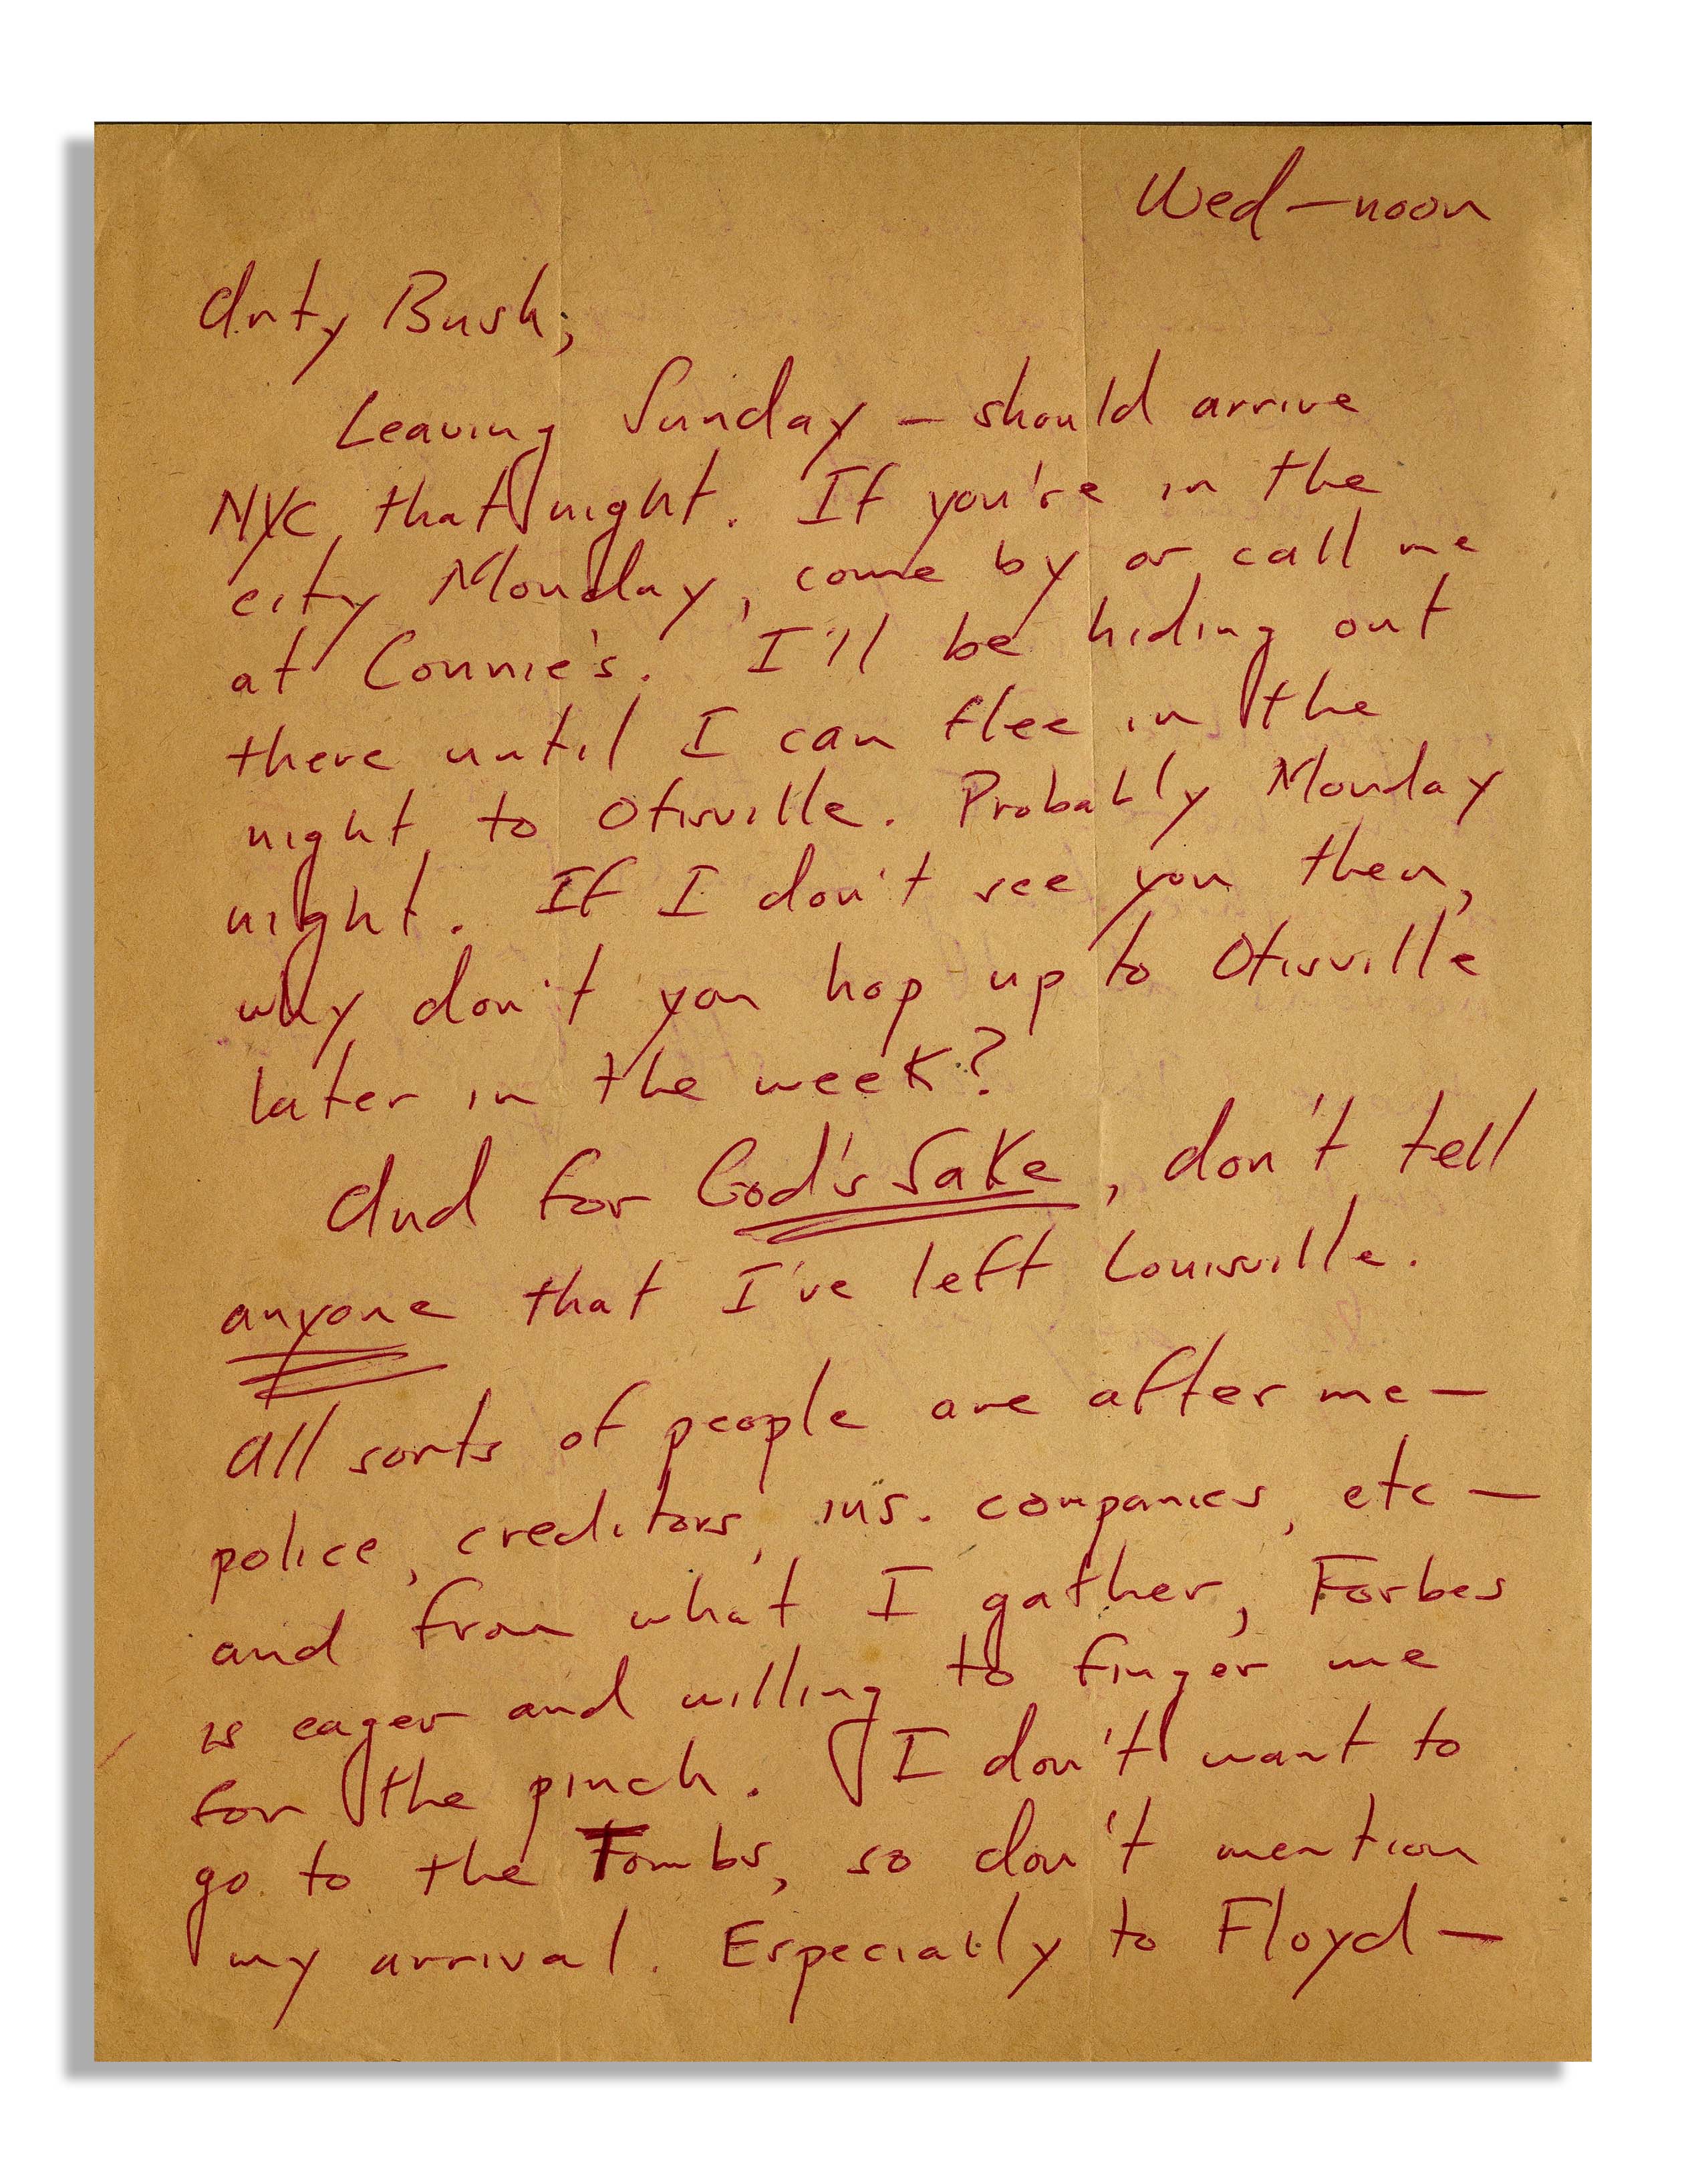 Wed — noon
dirty Bush,
Leaving Sunday — should arrive
NYC that night. If you're in the
city Monday, come by or call me
at Connie's. I'll be hiding out
there until I can flee in the
night to Otisville. Probably Monday
night. If I don't see you then,
why don't you hop up to Otisville
later in the week?
And for God's Sake, don't tell
anyone that I've left Louisville.
All sorts of people are after me —
police, creditors, ins. companies, etc —
and from what I gather, Forbes
is eager and willing to finger me
for the pinch. I don't want to
go to the Tombs, so don't mention
my arrival. Especially to Floyd —